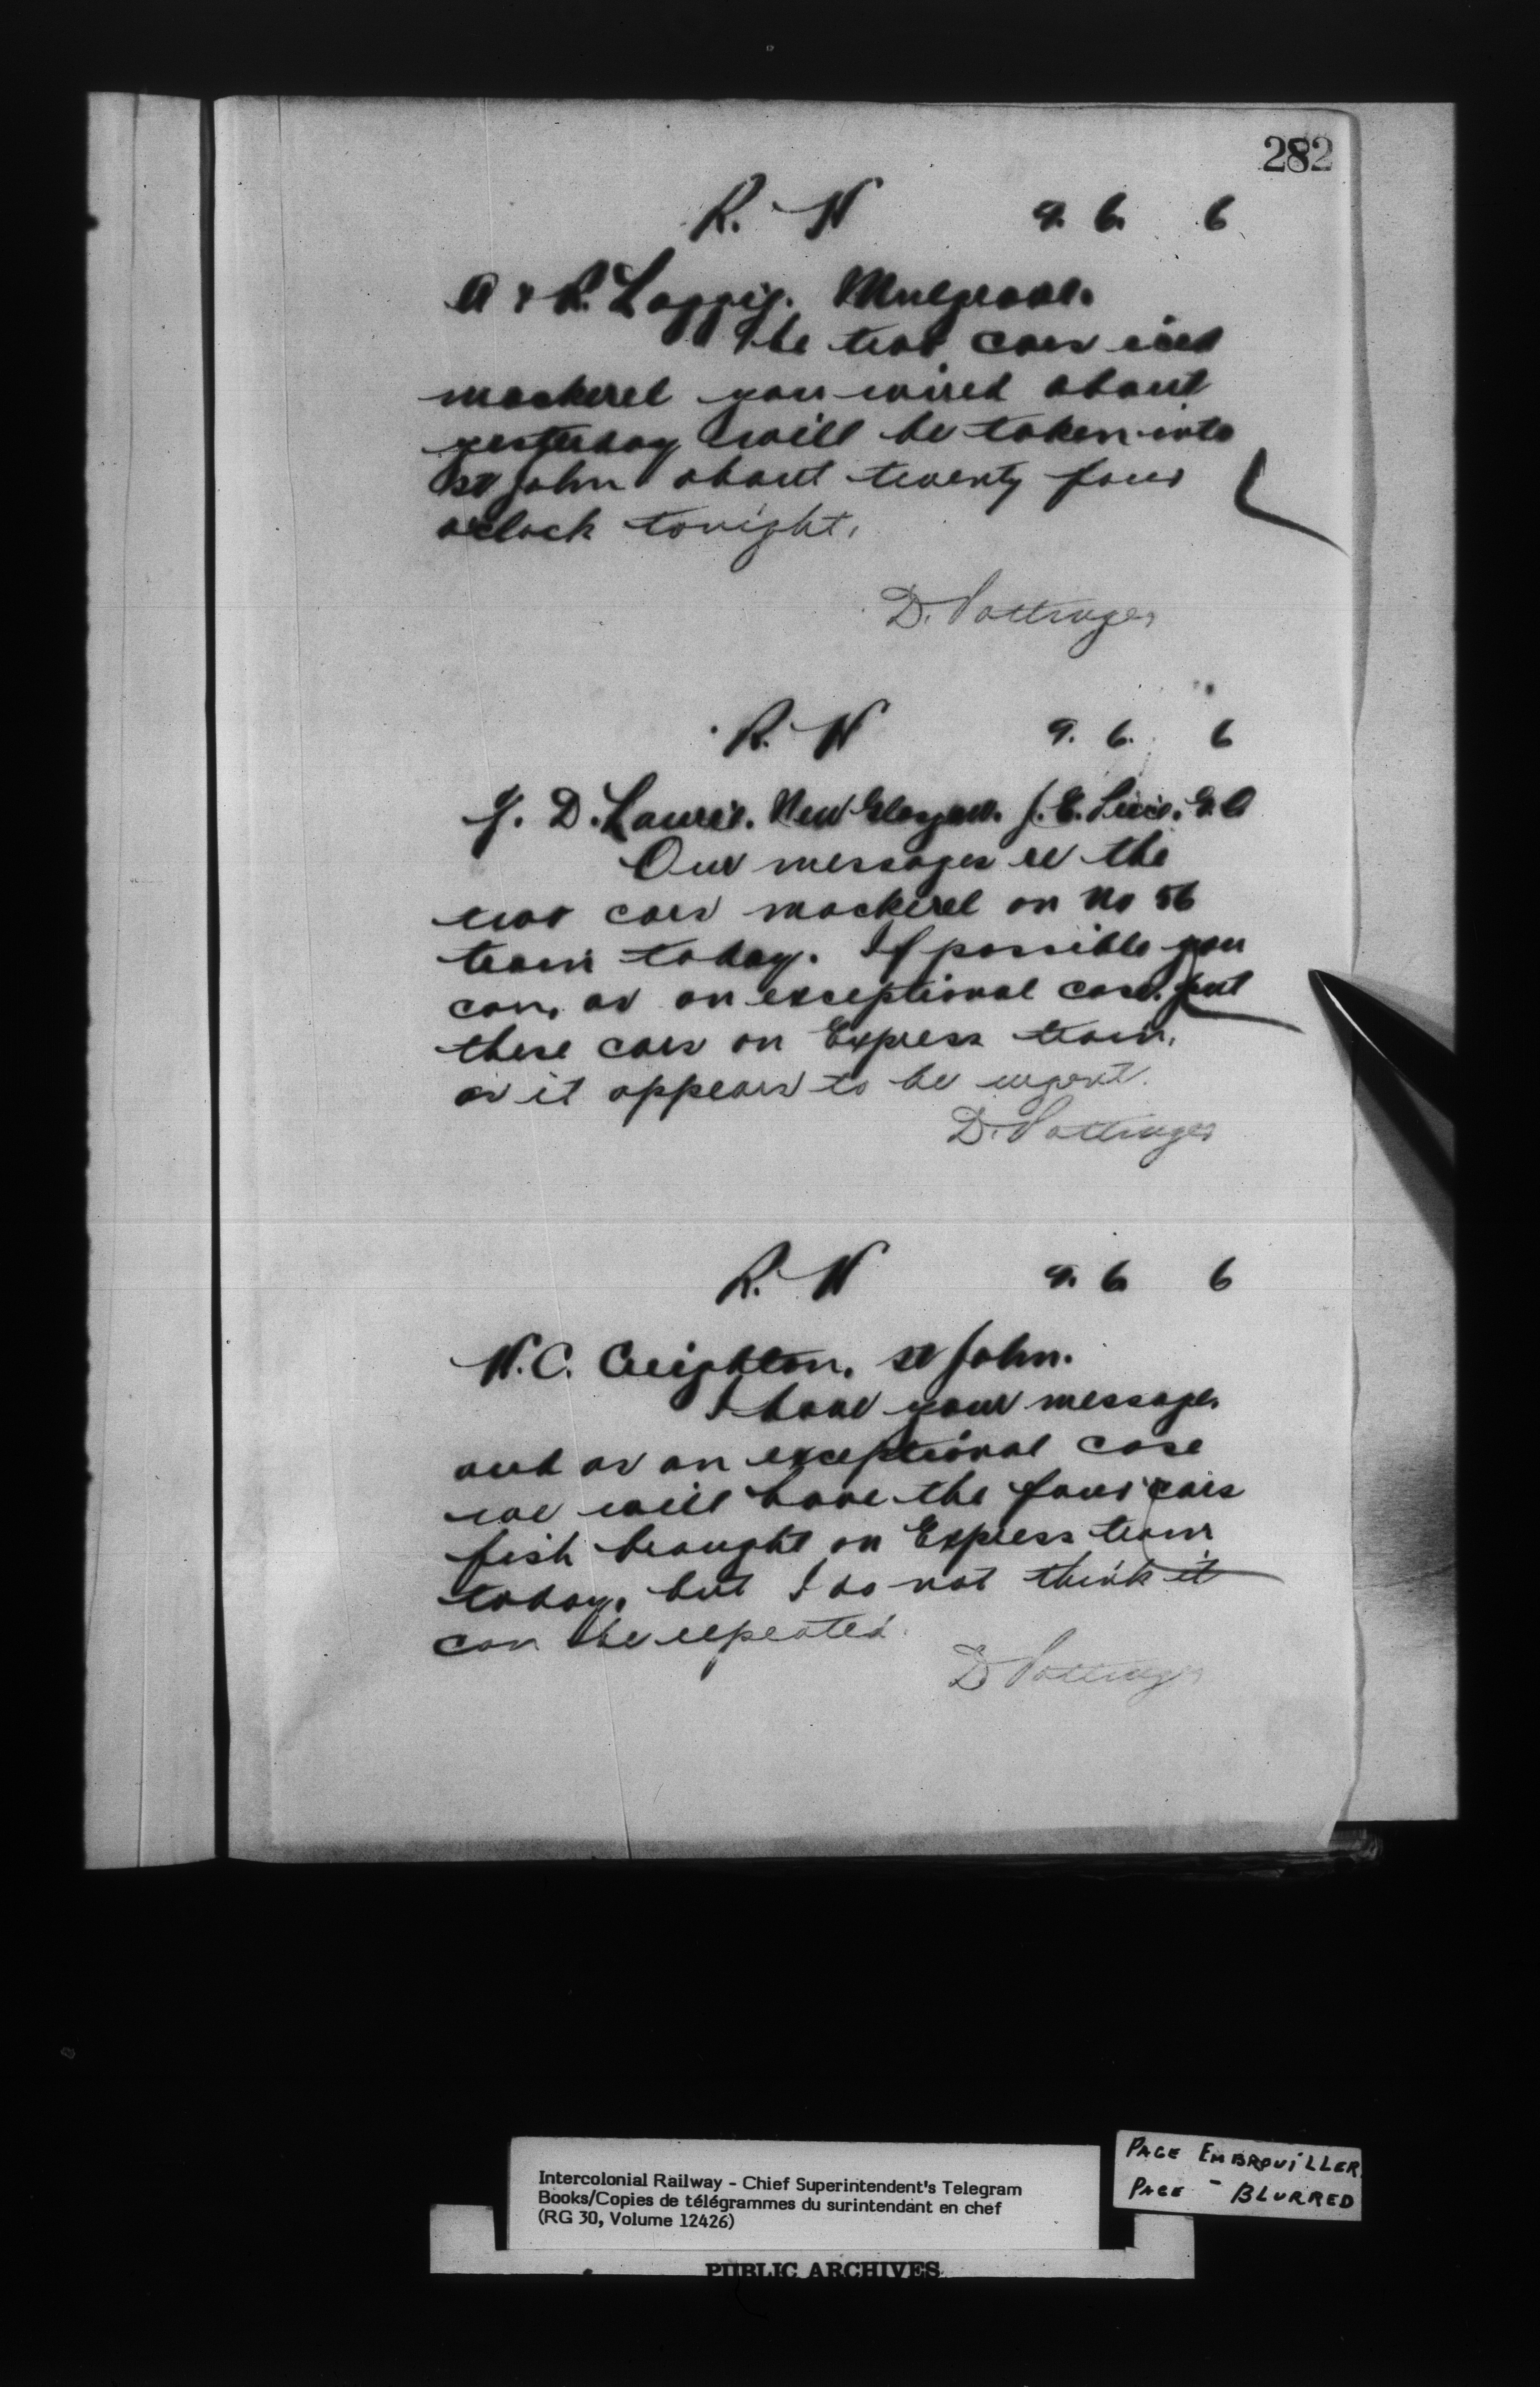 282
R. N 9. 6. 6
A & R. Loggie. Mulgrave.
The two cars iced
mackerel you wired about
yesterday will be taken into
St John about twenty four
oclock tonight.
D. Pottinger
R. N 9. 6. 6
Y. D. Laurie. New Glasgow. J. E. Price.
Our messages re the
two cars mackerel on No 56
train today. If possible you
can, as an exceptional case, put
these cars on Express train,
as it appears to be urgent.
D. Pottinger
R. N 9. 6 6
W. C. Creighton. St John.
I have your message,
and as an exceptional case
we will have the four cars
fish brought on Express train
today, but I do not think it
can be repeated.
D Pottinger
Intercolonial Railway - Chief Superintendent's Telegram
Books/Copies de télégrammes du surintendant en chef
(RG 30, Volume 12426)
PUBLIC ARCHIVES
PAGE EMBROUILLER
PAGE - BLURRED